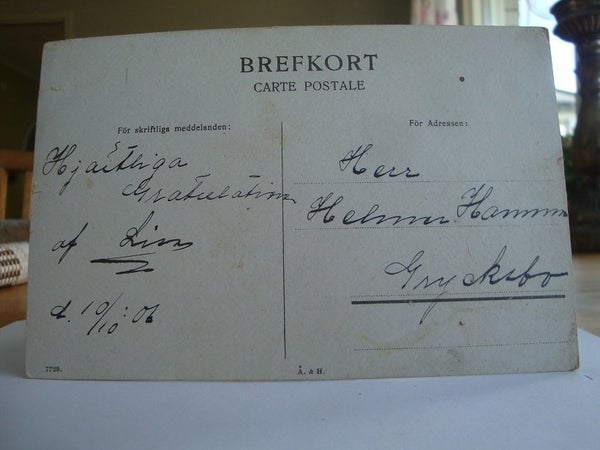 BREFKORT
CARTE POSTALE
För skriftliga meddelanden:
För Adressen:
Hjärtliga
Gratulation
af
d. 10/10: 06
Herr
Helmer
Grycksbo
7729.
Å. & H.